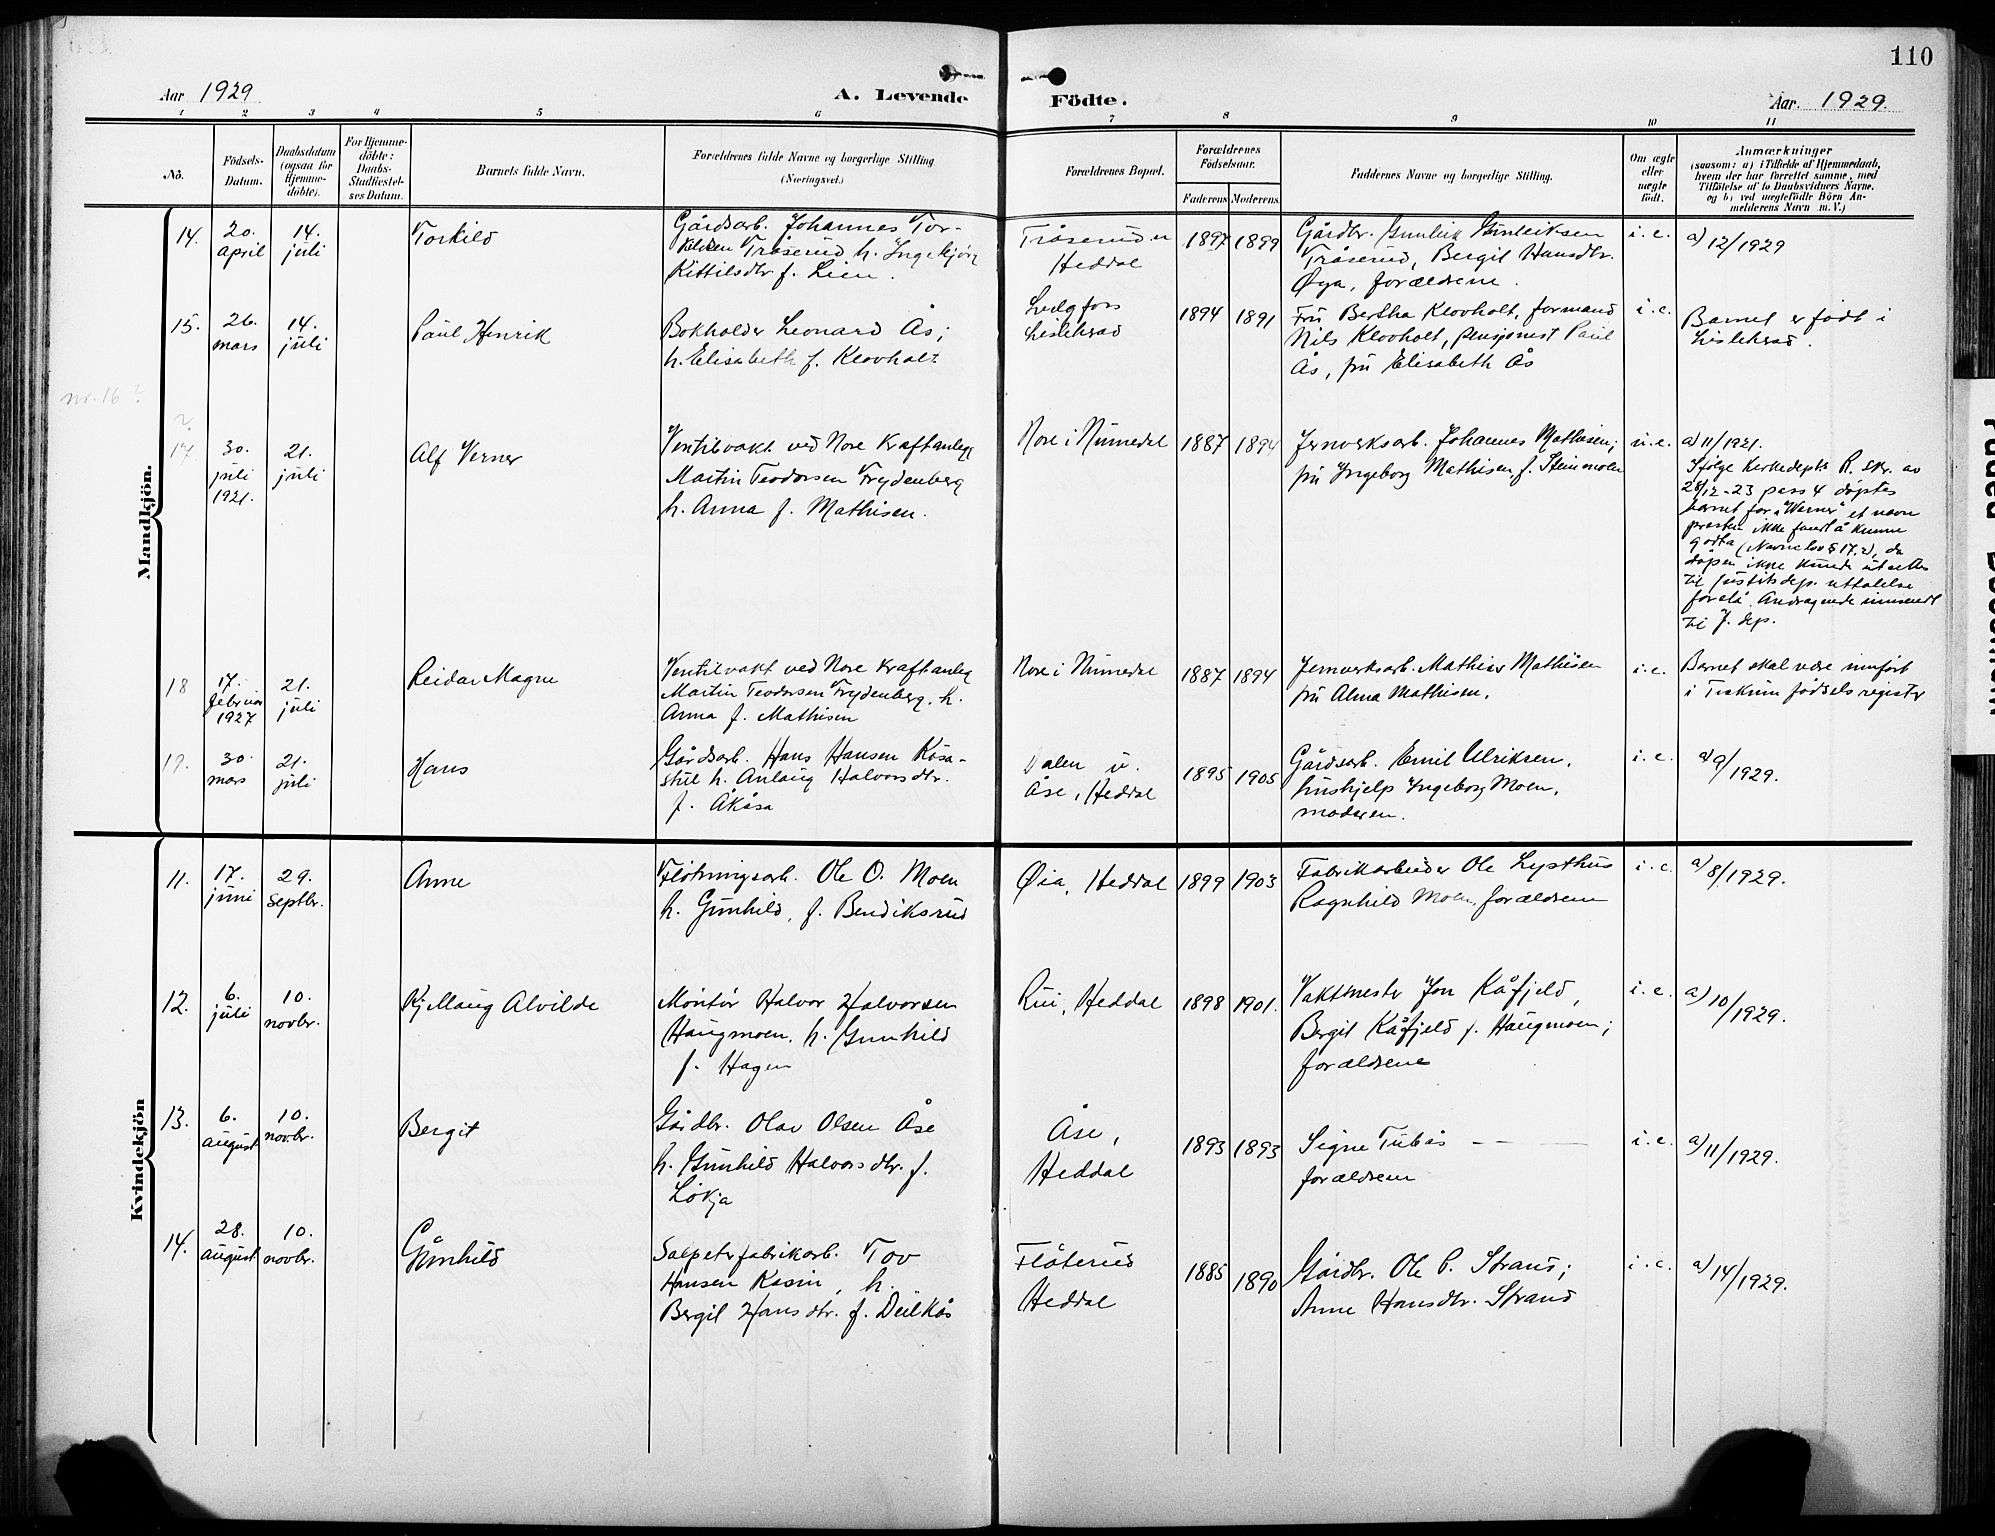 110
Aar 1929
A. Levende Födte.
Aar. 1929.
1 2 3 4 5 6 7 8 9 10 11
No.
Födsels-Datum.
Daabsdatum (ogsaa for Hjemme-döbte).
For Hjemme-döbte: Daabs-Stadfæstel-ses Datum.
Barnets fulde Navn.
Forældrenes fulde Navne og borgerlige Stilling
(Næringsvei.)
Forældrenes Bopæl.
Forældrenes Födselsaar.
Faderens Moderens
Faddernes Navne og borgerlige Stilling.
Om ægte eller uægte födt.
Anmærkninger
(saasom: a) i Tilfælde af Hjemmedaab,
hvem der har forrettet samme, med
Tilföielse af to Daabsvidners Navne,
og b) ved uægtefödte Börn An-
melderens Navn m. V.)
Mandkjön.
14.
20. april
14. juli
Torkild
Gårdsarb. Johannes Tor-
kildsen Tråserud h. Ingebjörg
Kittilsdtr f. Lien.
Tråserud u
Heddal
1897 1899
Gårdbr. Gunleik Gunleiksen
Tråserud, Bergit Hansdtr.
Øya, forældrene.
i. e.
a) 12/1929
15.
26. mars
14. juli
Paul Henrik
Bokholder Leonard Ås;
h. Elisabeth f. Klovholt
Svelgfoss
Lisleherad
1894 1891
Fru Bertha Klovholt, formand
Nils Klovholt, pensjonist Paul
Ås, fru Elisabeth Ås
i. e.
Barnet er födt i
Lisleherad.
nr. 16?
17
30. juli 1921.
21. juli
Alf Verner
Ventilvakt ved Nore Kraftanlegg
Martin Teodorsen Frydenberg
h. Anna f. Mathisen.
Nore i Numedal
1887 1894
Jernverksarb. Johannes Mathisen;
fru Ingeborg Mathisen f. Steinmoen
u. e.
a) 11/1921.
Ifölge Kirkedepts R. skr. av
28/12-23 pass 4 döptes
barnet for "Werner" et navn
presten ikke fandt å kunne
godta (Navnelov § 17.2), da
dåpen ikke kunde utsettes
til justitsdep. uttalelse
forelå. Andragende innsendt
til J. dep.
18
17. februar 1927
21. juli
Reidar Magne
Ventilvakt ved Nore Kraftanleg
Martin Teodorsen Frydenberg, h.
Anna f. Mathisen
Nore i Numedal
1887 1894
Jernverksarb. Mathias Mathisen
fru Alma Mathisen.
i. e.
Barnet skal være innfört
i Tinn födselsregister
19.
30. mars
21. juli
Hans
Gårdsarb. Hans Hansen Kåsa-
stul h. Anlaug Halvorsdtr.
f. Åkåsa
Dalen u.
Åse, Heddal
1895 1905
Gårdsarb. Emil Ulriksen,
hushjelp Ingeborg Moen,
moderen.
i. e.
a) 9/1929.
Kvindekjön
11.
17. juni
29. septbr.
Anne
Flötningsarb. Ole O. Moen
h. Gunhild, f. Bendiksrud
Øia, Heddal
1899 1903
Fabrikarbeider Ole Lysthus
Ragnhild Moen, forældrene
i. e.
a) 8/1929.
12.
6. juli
10. novbr.
Kjellaug Alvilde
Montör Halvor Halvorsen
Haugmoen, h. Gunhild
f. Hagen
Rui, Heddal
1898 1901.
Vaktmester Jon Kåfjeld,
Bergit Kåfjeld f. Haugmoen;
forældrene
i. e.
a) 10/1929.
13.
6. august
10. novbr.
Bergit
Gårdbr. Olav Olsen Åse
h. Gunhild Halvorsdtr. f.
Lökja
Åse,
Heddal
1893 1893
Signe Tubås
forældrene
i. e.
a) 11/1929.
14.
28. august
10. novbr.
Gunhild
Salpeterfabrikarb. Tov
Hansen Kasin, h.
Bergit Hansdtr. f. Duilkås
Flåterud
Heddal
1885 1890
Gårdbr. Ole C. Strand;
Anne Hansdtr. Strand
i. e.
a) 14/1929.